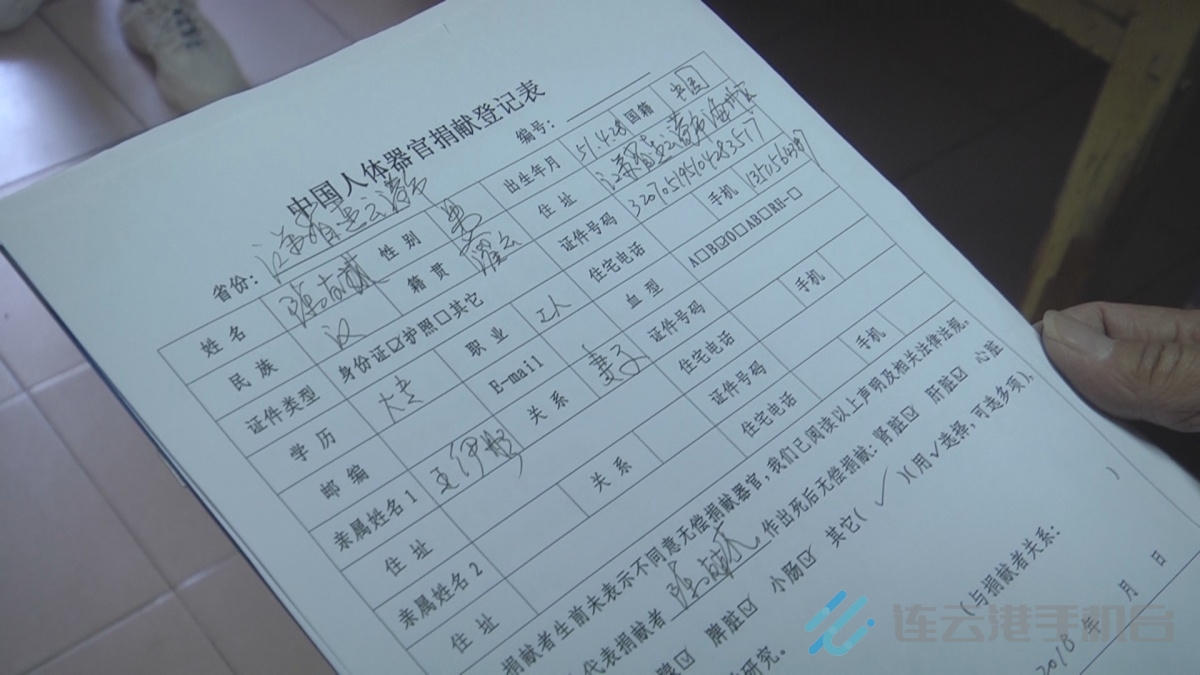 中国人体器官捐献登记表
省份: 江苏省连云港市 编号:
姓名 性别 男 出生年月 51.4.28 国籍 中国
民族 汉 籍贯 灌云 住址 江苏省连云港市海州区
证件类型 身份证☑护照□其它 证件号码
学历 大专 职业 工人 住宅电话 手机
邮编 E-mail 血型 A□B☑O□AB□RH-□
亲属姓名1 关系 妻子 证件号码 手机
住址 住宅电话
亲属姓名2 关系 证件号码 手机
住址 住宅电话
捐献者生前未表示不同意无偿捐献器官,我们已阅读以上声明及相关法律法规,
代表捐献者 作出死后无偿捐献:肾脏☑ 肝脏☑ 心脏
脾脏☑ 小肠☑ 其它( ✓ )(用√选择,可选多项)
研究。 )
(与捐献者关系:
2018年 月 日
连云港手机台